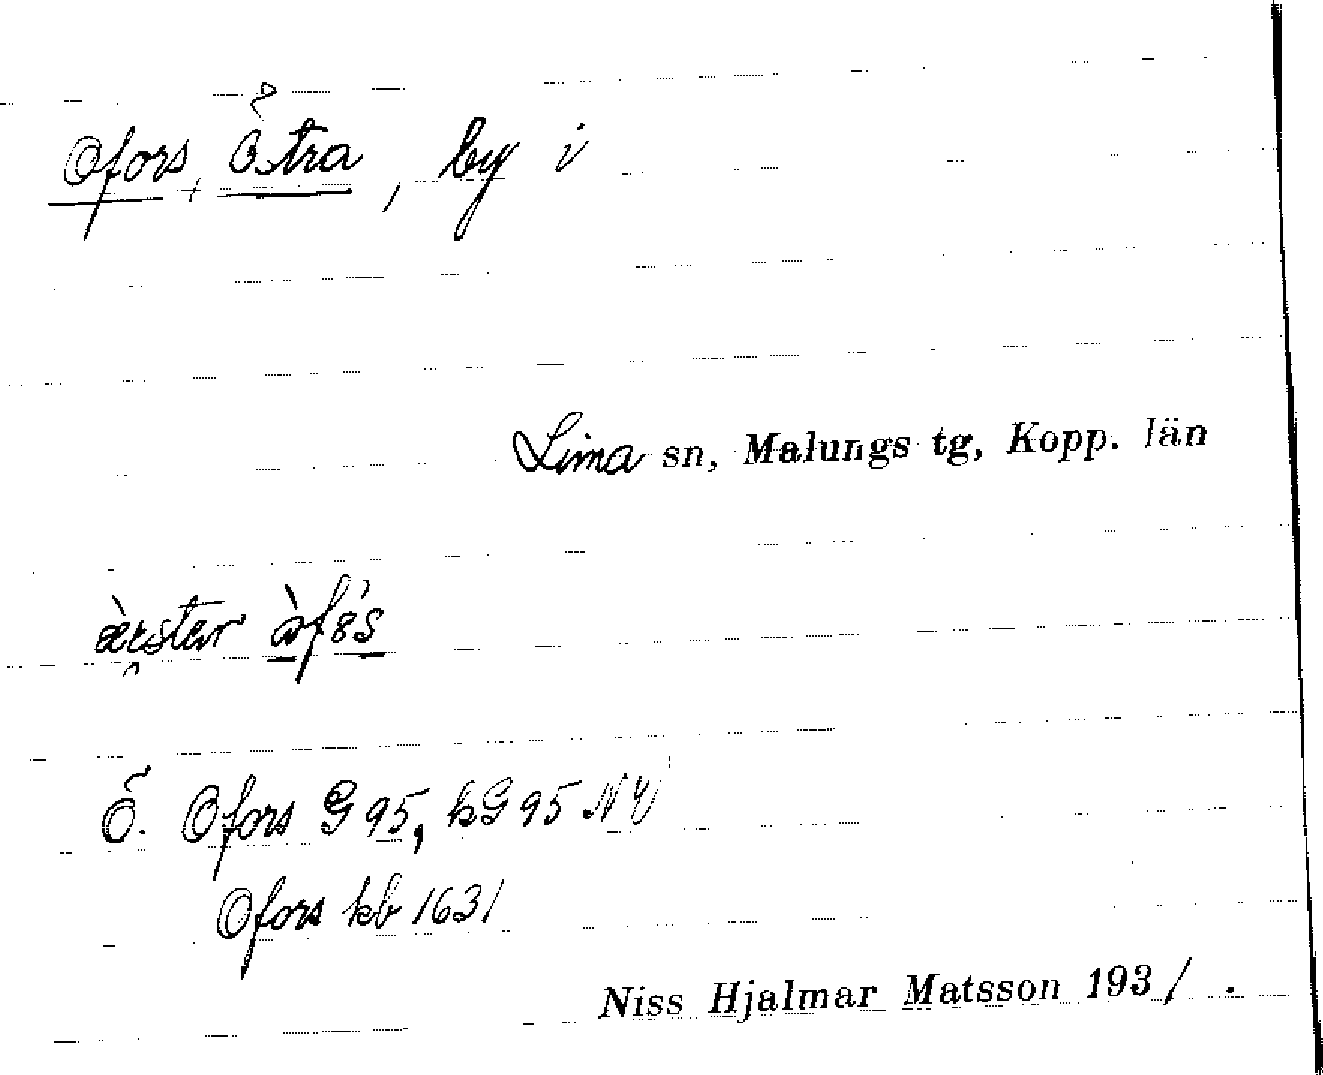 Ofors, Östra, by i
Lima sn, Malungs tg, Kopp. län
Ö. Ofors G 95, kG 95 NV
Ofors kb 1631
Niss Hjalmar Matsson 193/ .